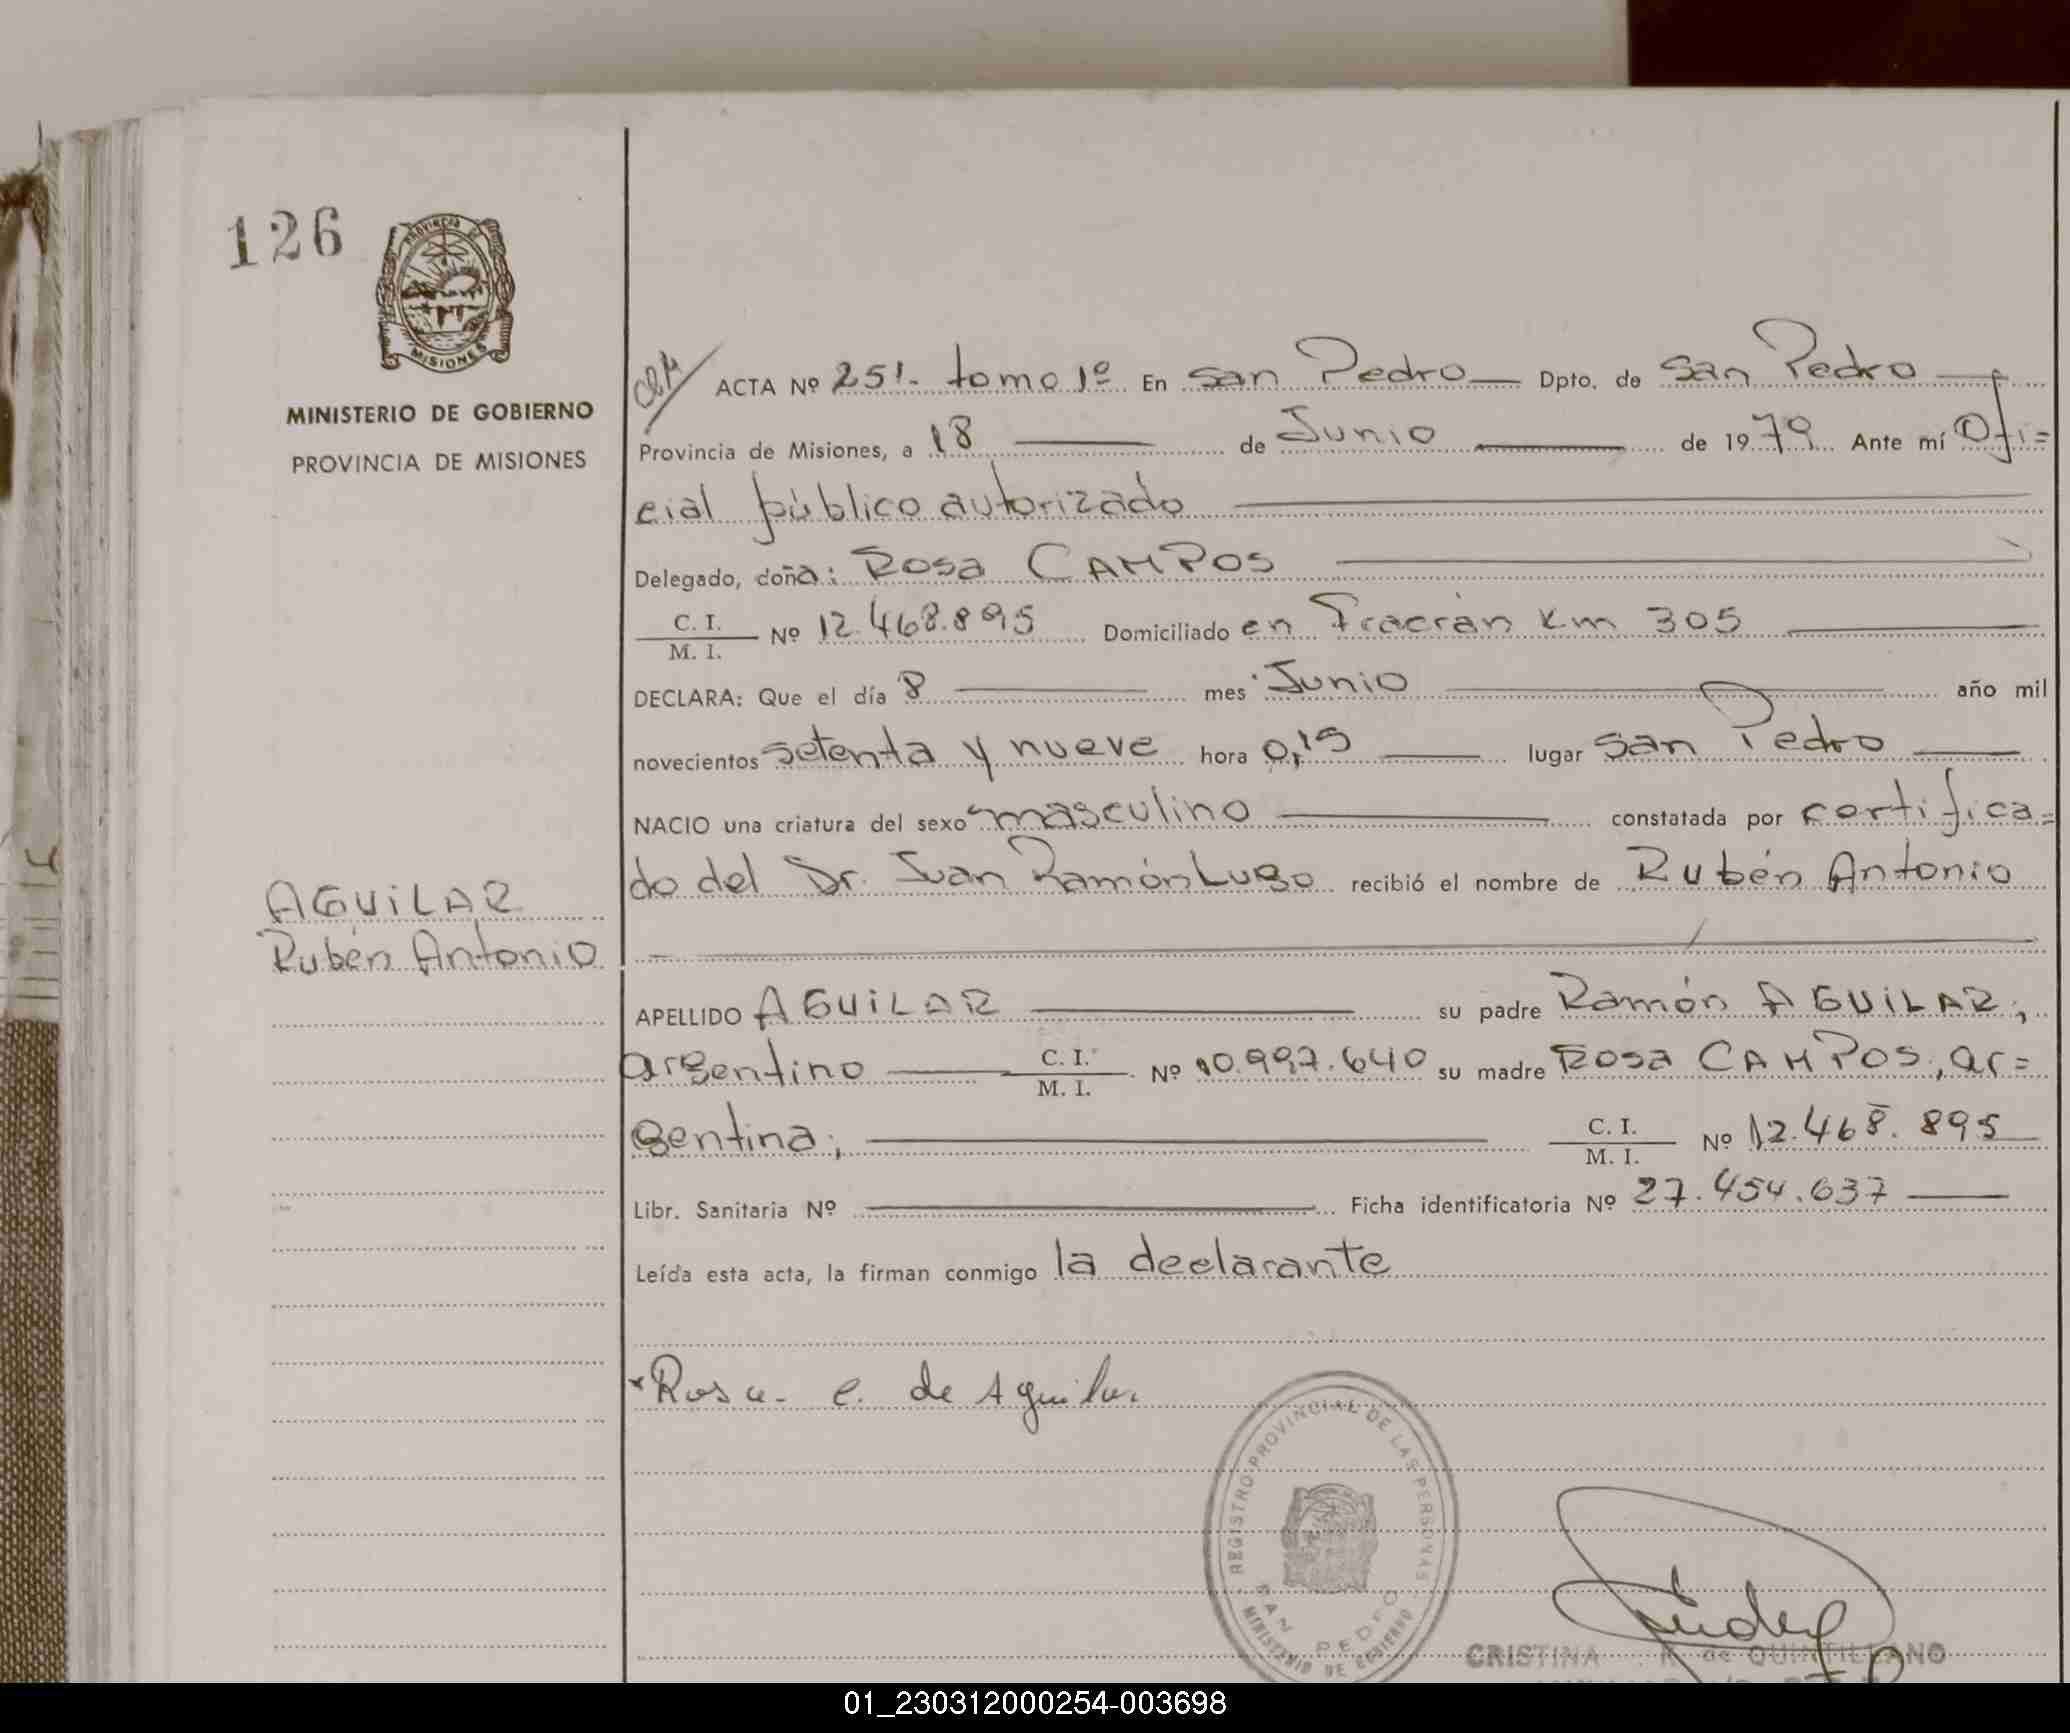 126
PROVINCIA DE
MISIONES
MINISTERIO DE GOBIERNO
PROVINCIA DE MISIONES
AGUILAR
Rubén Antonio
ACTA Nº 251. tomo 1º En San Pedro Dpto. de San Pedro
Provincia de Misiones, a 18 de Junio de 1979 Ante mí Ofi=
cial público autorizado
Delegado, doña: Rosa CAMPOS
C. I.
M. I. Nº 12.468.895 Domiciliado en Fracrán Km 305
DECLARA: Que el día 8 mes Junio año mil
novecientos setenta y nueve hora 0,15 lugar San Pedro
NACIO una criatura del sexo masculino constatada por certifica=
do del Dr. Juan Ramón Lugo recibió el nombre de Rubén Antonio
APELLIDO AGUILAR su padre Ramón AGUILAR;
argentino C. I.
M. I. Nº 10.997.640 su madre Rosa CAMPOS, ar=
gentina; C. I.
M. I. Nº 12.468.895
Libr. Sanitaria Nº Ficha identificatoria Nº 27.454.637
Leída esta acta, la firman conmigo la declarante
Rosa C. de Aguilar
REGISTRO PROVINCIAL DE LAS PERSONAS
SAN PEDRO
MINISTERIO DE GOBIERNO
CRISTINA R. de QUINTILLANO
01_230312000254-003698